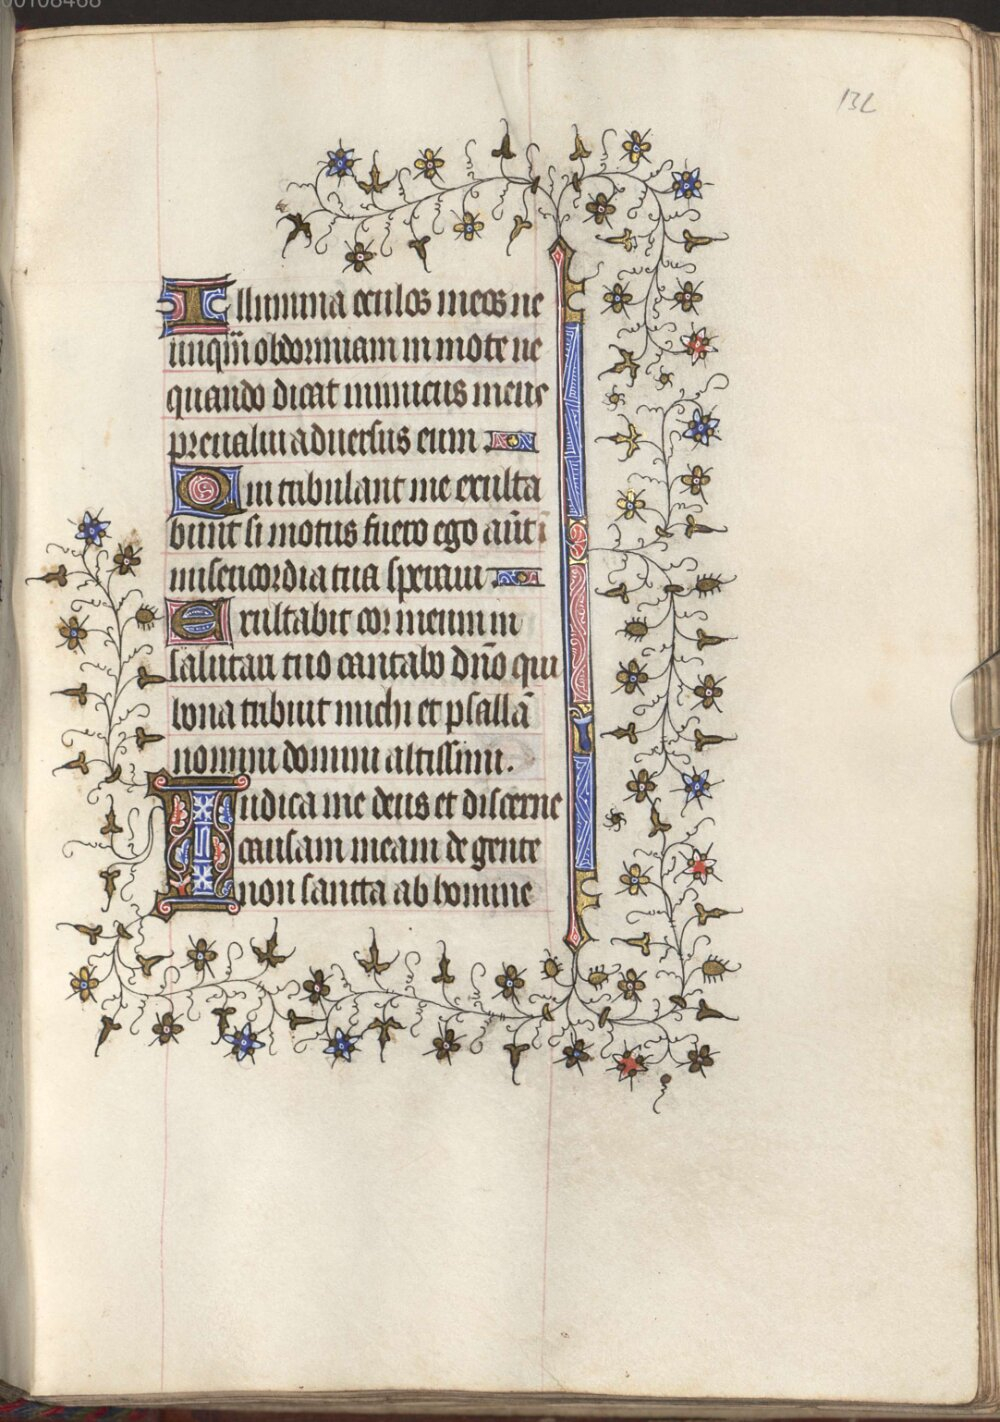 00108468
132
Illumina oculos meos ne
unqm̄ obdormiam in mote ne
quando dicat inimicus meus
preualui aduersus eum
Qui tribulant me exulta
bunt si motus fuero ego aūt ī
misericordia tua speraui
Exultabit cor meum in
salutari tuo cantabo dn̄o qui
bona tribuit michi et psallā
nomini domini altissimi.
Iudica me deus et discerne
causam meam de gente
non sancta ab homine